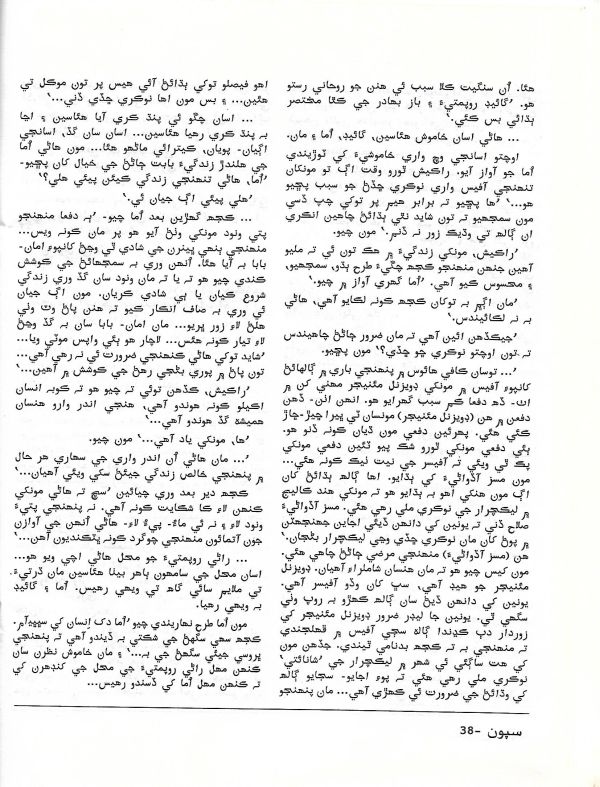 هئا. اُن سنگيت ڪلا سبب ئي هنن جو روحاني رستو
هو. 'گائيڊ روپمتيءَ ۽ باز بهادر جي ڪٿا مختصر
ٻڌائي بس ڪئي.'
... هاڻي اسان خاموش هئاسين، گائيڊ، اُما ۽ مان.
اوچتو اسانجي وچ واري خاموشيءَ کي ٽوڙيندي
اُما جو آواز آيو. راڪيش ٿورو وقت اڳ تو مونکان
تنهنجي آفيس واري نوڪري ڇڏڻ جو سبب پڇيو
هو...' 'ها پڇيو ته برابر هيم پر توکي چپ ڏسي
مون سمجهيو ته تون شايد نٿي ٻڌائڻ چاهين انڪري
ان ڳالهه تي وڌيڪ زور نه ڏنم.' مون چيو.
'راڪيش، مونکي زندگيءَ ۾ هڪ تون ئي ته مليو
آهين جنهن منهنجو ڪجهه چڱيءَ طرح ٻڌو، سمجهيو،
۽ محسوس ڪيو آهي. 'اُما گهري آواز ۾ چيو.'
'مان اڳم به توکان ڪجهه ڪونه لڪايو آهي، هاڻي
به نه لڪائيندس.'
'جيڪڏهن ائين آهي ته مان ضرور ڄاڻڻ چاهيندس
ته تون اوچتو نوڪري ڇو ڇڏي؟' مون پڇيو.
'... توسان ڪافي هائوس ۾ پنهنجي باري ۾ ڳالهائڻ
کانپوءِ آفيس ۾ مونکي ڊويزنل مئنيجر مهني کن ۾
اٺ- ڏهه دفعا ڪم سبب گهرايو هو. انهن اٺن- ڏهن
دفعن ۾ هن (ڊويزنل مئنيجر) مونسان ٽي ڀيرا ڇيڙ-ڇاڙ
ڪئي هئي. پهرئين دفعي مون ڌيان ڪونه ڏنو هو.
ٻئي دفعي مونکي ٿورو شڪ پيو ٽئين دفعي مونکي
پڪ ٿي ويئي ته آفيسر جي نيت نيڪ ڪونه هئي...
مون مسز آڏواڻيءَ کي ٻڌايو. اها ڳالهه ٻڌائڻ کان
اڳ مون هنکي اهو به ٻڌايو هو ته مونکي هند ڪاليج
۾ ليڪچرار جي نوڪري ملي رهي هئي. مسز آڏواڻيءَ
صلاح ڏني ته يونين کي دانهن ڏيئي اجاين جهنجهٽن
۾ پوڻ کان مان نوڪري ڇڏي وڃي ليڪچرار بڻجان.'
هن (مسز آڏواڻيءَ) منهنجي مرضي ڄاڻڻ چاهي هئي.
مون کيس چيو هو ته مان هنسان شاملراءِ آهيان. ڊويزنل
مئنيجر جو هيڊ آهي، سڀ کان وڏو آفيسر آهي.
يونين کي دانهن ڏيڻ سان ڳالهه ڪهڙو به روپ وٺي
سگهي ٿي. يونين جا ليڊر ضرور ڊويزنل مئنيجر کي
زوردار دٻ ڪڍندا ڳالهه سڄي آفيس ۾ ڦهلجندي
ته منهنجي به ته ڪجهه بدنامي ٿيندي. جڏهن مون
کي هٿ ساڳئي ئي شهر ۾ ليڪچرار جي 'شانائتي'
نوڪري ملي رهي هئي ته پوءِ اجايو- سجايو ڳالهه
کي وڌائڻ جي ضرورت ئي ڪهڙي آهي... مان پنهنجو
اهو فيصلو توکي ٻڌائڻ آئي هيس پر تون موڪل تي
هئين... ۽ بس مون اها نوڪري ڇڏي ڏني...'
... اسان چڱو ئي پنڌ ڪري آيا هئاسين ۽ اڃا
به پنڌ ڪري رهيا هئاسين... اسان سان گڏ، اسانجي
اڳيان- پويان، ڪيترائي ماڻهو هئا... مون هاڻي اُما
جي هلندڙ زندگيءَ بابت ڄاڻڻ جي خيال کان پڇيو-
'اُما، هاڻي تنهنجي زندگي ڪيئن پيئي هلي؟'
'هلي پيئي اڳ جيان ئي.'
... ڪجهه گهڙين بعد اُما چيو- 'ٻه دفعا منهنجو
پتي ونود مونکي وٺڻ آيو هو پر مان ڪونه ويس...
منهنجي ٻنهي ڀينرن جي شادي ٿي وڃڻ کانپوءِ امان-
بابا به آيا هئا. اُنهن وري به سمجهائڻ جي ڪوشش
ڪندي چيو هو ته يا ته مان ونود سان گڏ وري زندگي
شروع ڪيان يا ٻي شادي ڪريان. مون اڳ جيان
ئي وري به صاف انڪار ڪيو ته هنن پاڻ وٽ وٺي
هلڻ لاءِ زور ڀريو... مان امان- بابا سان به گڏ وڃڻ
لاءِ تيار ڪونه هئس... لاچار هو ٻئي واپس موٽي ويا...
'شايد توکي هاڻي ڪنهنجي ضرورت ئي نه رهي آهي...
تون پاڻ ۾ پوري بڻجي رهڻ جي ڪوشش ۾ آهين...'
'راڪيش، ڪڏهن توئي ته چيو هو ته ڪوبه انسان
اڪيلو ڪونه هوندو آهي، هنجي اندر وارو هنسان
هميشه گڏ هوندو آهي...'
'ها، مونکي ياد آهي...' مون چيو.
'... مان هاڻي اُن اندر واري جي سهاري هر حال
۾ پنهنجي خالص زندگي جيئڻ سکي ويئي آهيان...'
ڪجهه دير بعد وري چيائين 'سچ ته هاڻي مونکي
ڪنهن لاءِ ڪا شڪايت ڪونه آهي. نه پنهنجي پتيءَ
ونود لاءِ ۽ نه ئي ماءُ- پيءُ لاءِ- هاڻي اُنهن جي آوازن
جون آتمائون منهنجي چوگرد ڪونه ڀٽڪنديون آهن...'
... راڻي روپمتيءَ جو محل هاڻي اچي ويو هو...
اسان محل جي سامهون ٻاهر بيٺا هئاسين مان ڌرتيءَ
تي ملايم ساڻي گاهه تي ويهي رهيس. اُما ۽ گائيڊ
به ويهي رهيا.
مون اُما طرح نهاريندي چيو 'اُما دک اِنسان کي سيپيءَ ۾
ڪجهه سهي سگهڻ جي شڪتي به ڏيندو آهي ته پنهنجي
ڀروسي جيئي سگهڻ جي به...' ۽ مان خاموش نظرن سان
ڪنهن مهل راڻي روپمتيءَ جي محل جي کنڊهرن کي
ته ڪنهن مهل اُما کي ڏسندو رهيس...
سپون -38